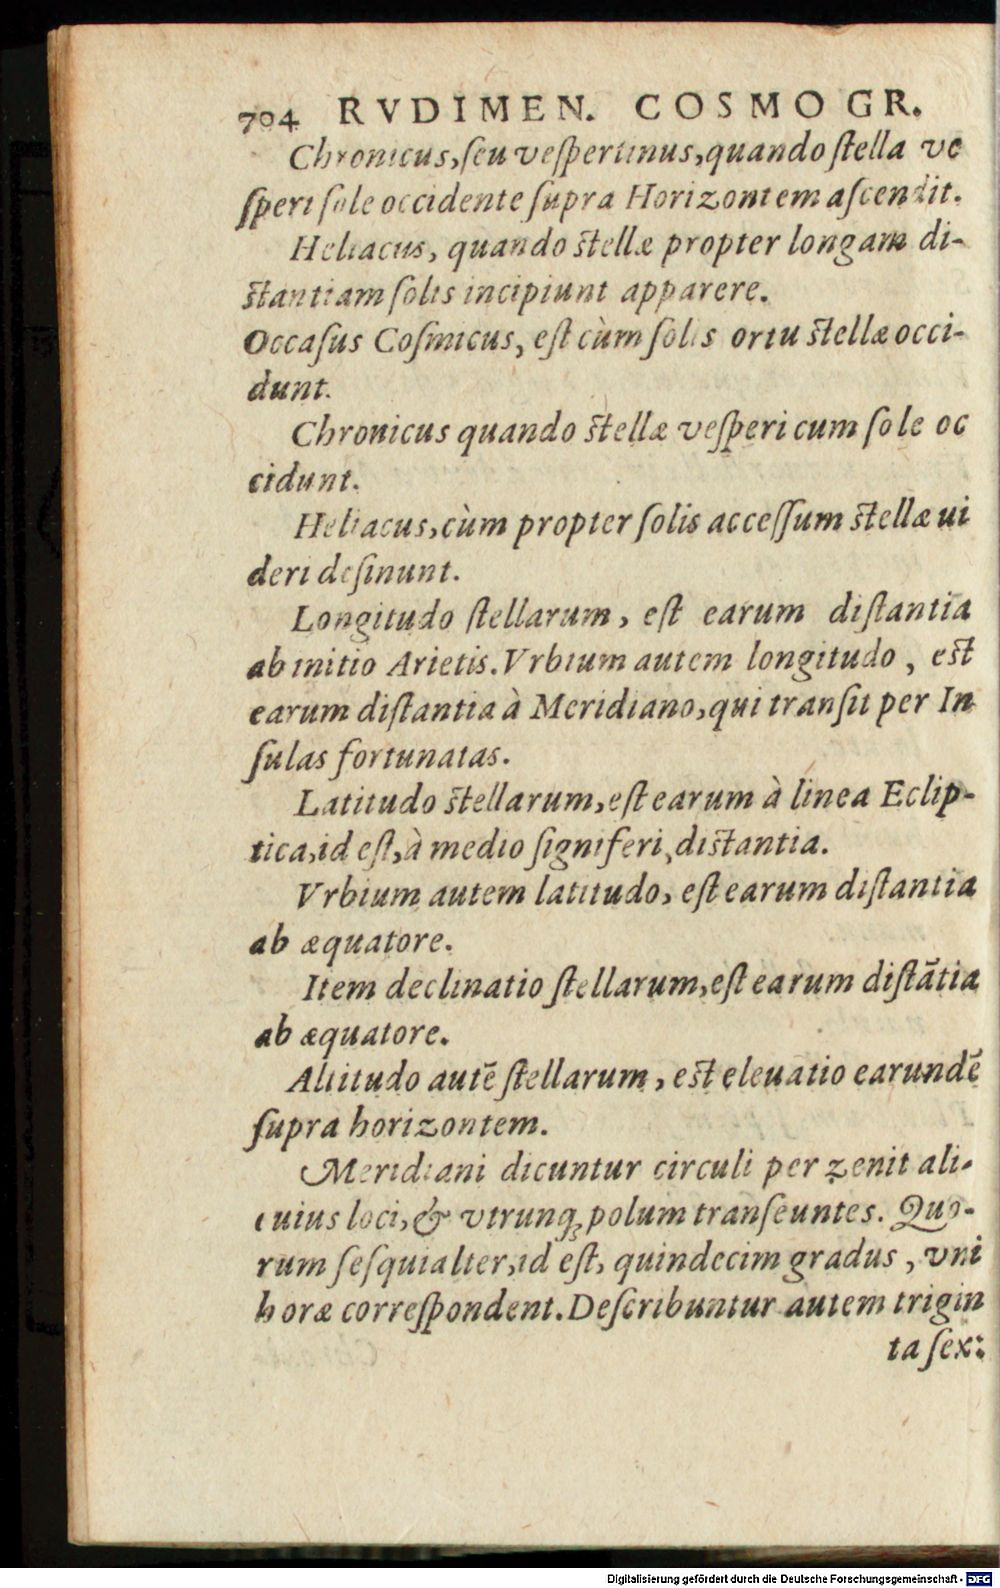 704 RVDIMEN. COSMOGR.
Chronicus, ſeu veſpertinus, quando ſtella ve
ſperi ſole occidente ſupra Horizontem aſcendit.
Heliacus, quando ſtellæ propter longam di-
ſtantiam ſolis incipiunt apparere.
Occaſus Coſmicus, eſt cùm ſolis ortu ſtellæ occi-
dunt.
Chronicus quando ſtellæ veſperi cum ſole oc
cidunt.
Heliacus, cùm propter ſolis acceſſum ſtellæ ui
deri deſinunt.
Longitudo ſtellarum, eſt earum diſtantia
ab initio Arietis. Vrbium autem longitudo, eſt
earum diſtantia à Meridiano, qui tranſit per In
ſulas fortunatas.
Latitudo ſtellarum, eſt earum à linea Eclip-
tica, id eſt, à medio ſigniferi, diſtantia.
Vrbium autem latitudo, eſt earum diſtantia
ab æquatore.
Item declinatio ſtellarum, eſt earum diſtãtia
ab æquatore.
Altitudo autẽ ſtellarum, eſt eleuatio earundẽ
ſupra horizontem.
Meridiani dicuntur circuli per zenit ali-
cuius loci, & vtrunq; polum tranſeuntes. Quo-
rum ſeſquialter, id eſt, quindecim gradus, vni
horæ correſpondent. Deſcribuntur autem trigin
ta ſex:
Digitalisierung gefördert durch die Deutsche Forschungsgemeinschaft - DFG